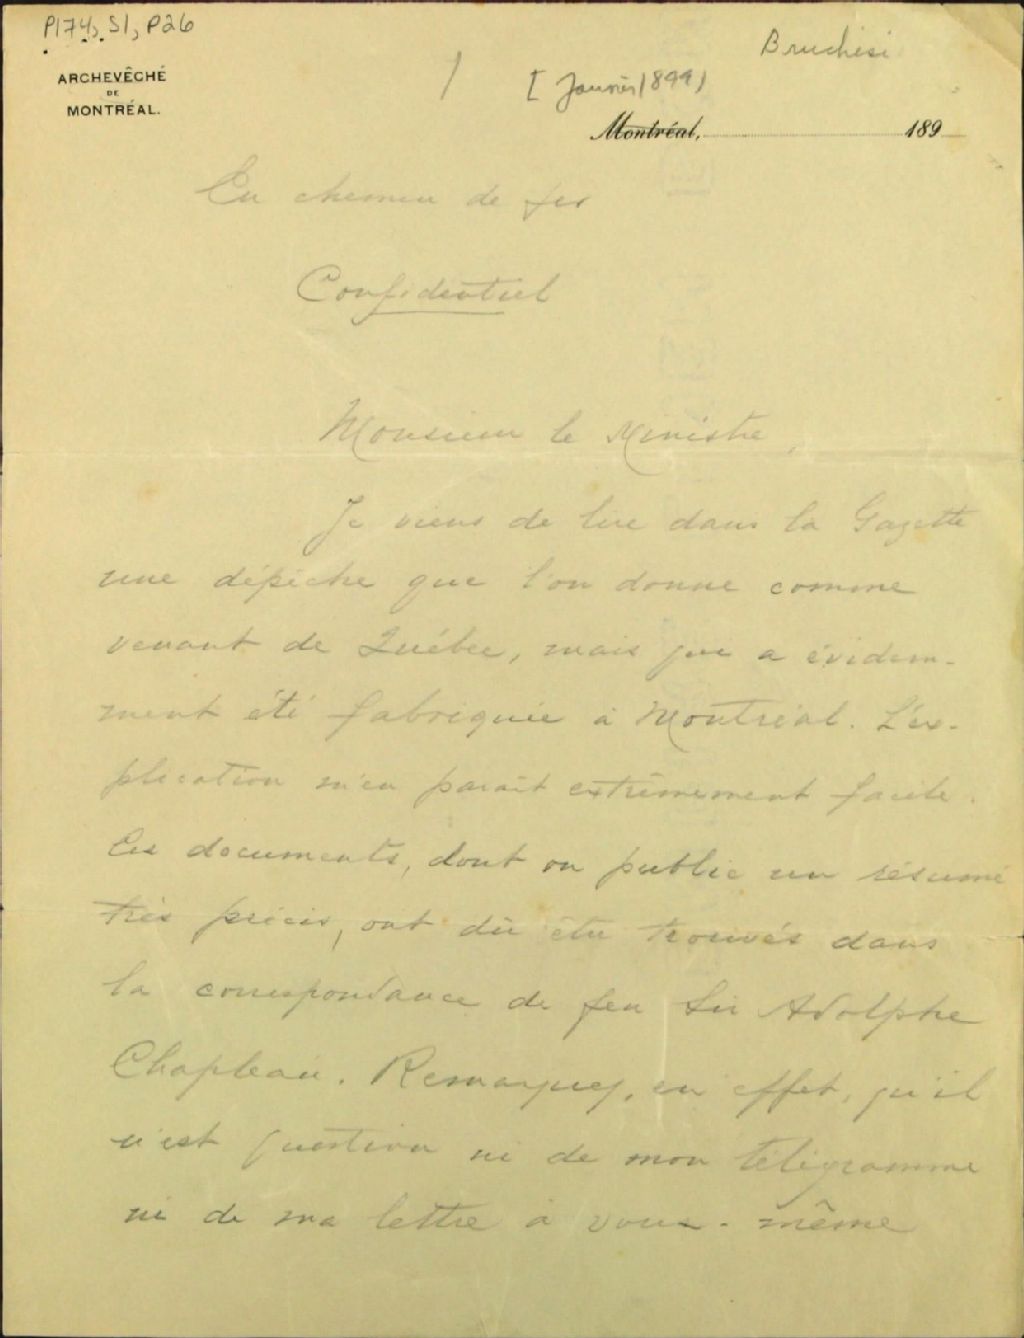 P174, S1, P26
Bruchési
ARCHEVÊCHÉ
DE
MONTRÉAL.
[Janvier 1899]
Montréal, 189
En chemin de fer
Confidentiel
Monsieur le Ministre,
Je viens de lire dans la Gazette
une dépêche que l'on donne comme
venant de Québec, mais qui a évidem-
ment été fabriquée à Montréal. L'ex-
plication m'en parait extrêmement facile.
Ces documents, dont on publie un résumé
très précis, ont dû être trouvés dans
la correspondance de feu Sir Adolphe
Chapleau. Remarquez, en effet, qu'il
n'est question ni de mon télégramme
ni de ma lettre à vous-même